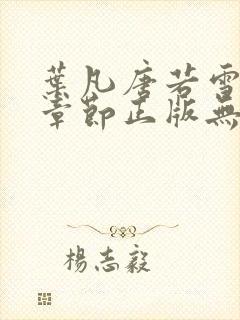 葉凡唐若雪
章節正版無
楊志毅